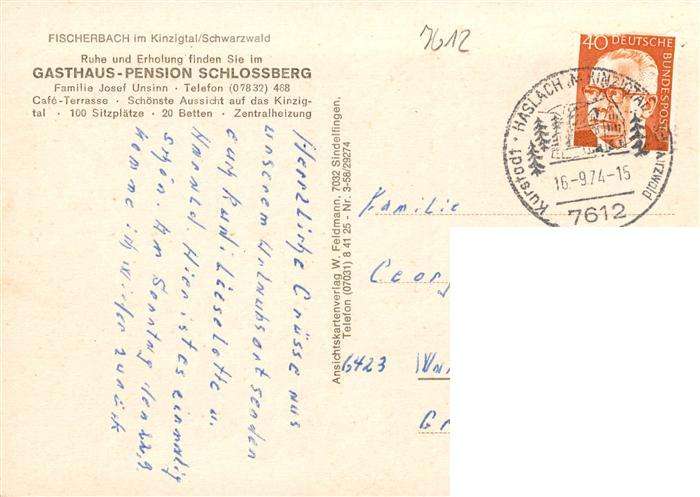 FISCHERBACH im Kinzigtal/Schwarzwald
Ruhe und Erholung finden Sie im
GASTHAUS-PENSION SCHLOSSBERG
Familie Josef Unsinn · Telefon (07832) 468
Café-Terrasse · Schönste Aussicht auf das Kinzig-
tal · 100 Sitzplätze · 20 Betten · Zentralheizung
7612
40 DEUTSCHE BUNDESPOST
HASLACH KINZIGTAL Schwarzwald
Kurstadt
16.-9.74-15
7612
Herzliche Grüsse aus
unserem Urlaubsort senden
euch Rudi Lieselotte u.
Harald. Hier ist es einmalig
schön. Am Sonntag den 22.9.
komme ich wieder zurück
Ansichtskartenverlag W. Feldmann, 7032 Sindelfingen,
Telefon (07031) 8 41 25 - Nr. 3-58/29274
Familie
Georg
6423